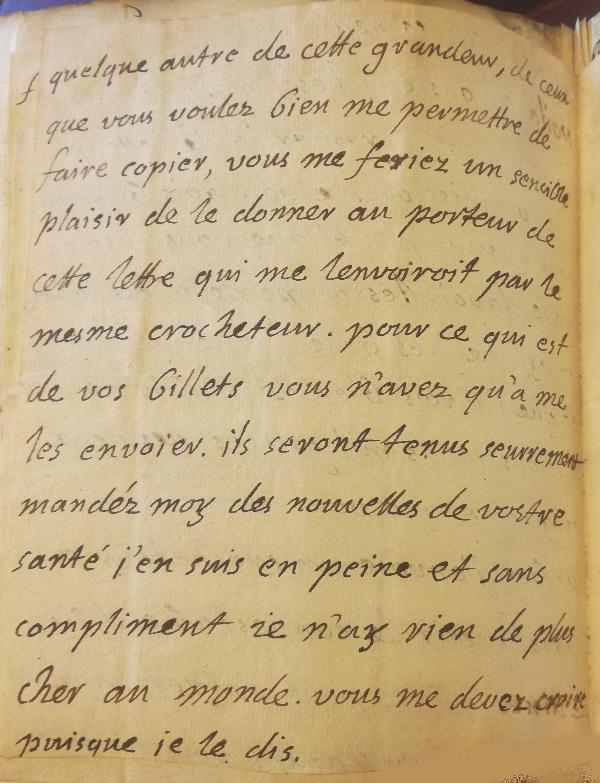 quelque autre de cette grandeur, de ceux
que vous voulez bien me permettre de
faire copier, vous me feriez un sencible
plaisir de le donner au porteur de
cette lettre qui me lenvoiroit par le
mesme crocheteur. pour ce qui est
de vos billets vous n'avez qu'a me
les envoier. ils seront tenus seurrement
mandéz moy des nouvelles de vostre
santé j'en suis en peine et sans
compliment ie n'ay rien de plus
cher au monde. vous me devez croire
puisque ie le dis.